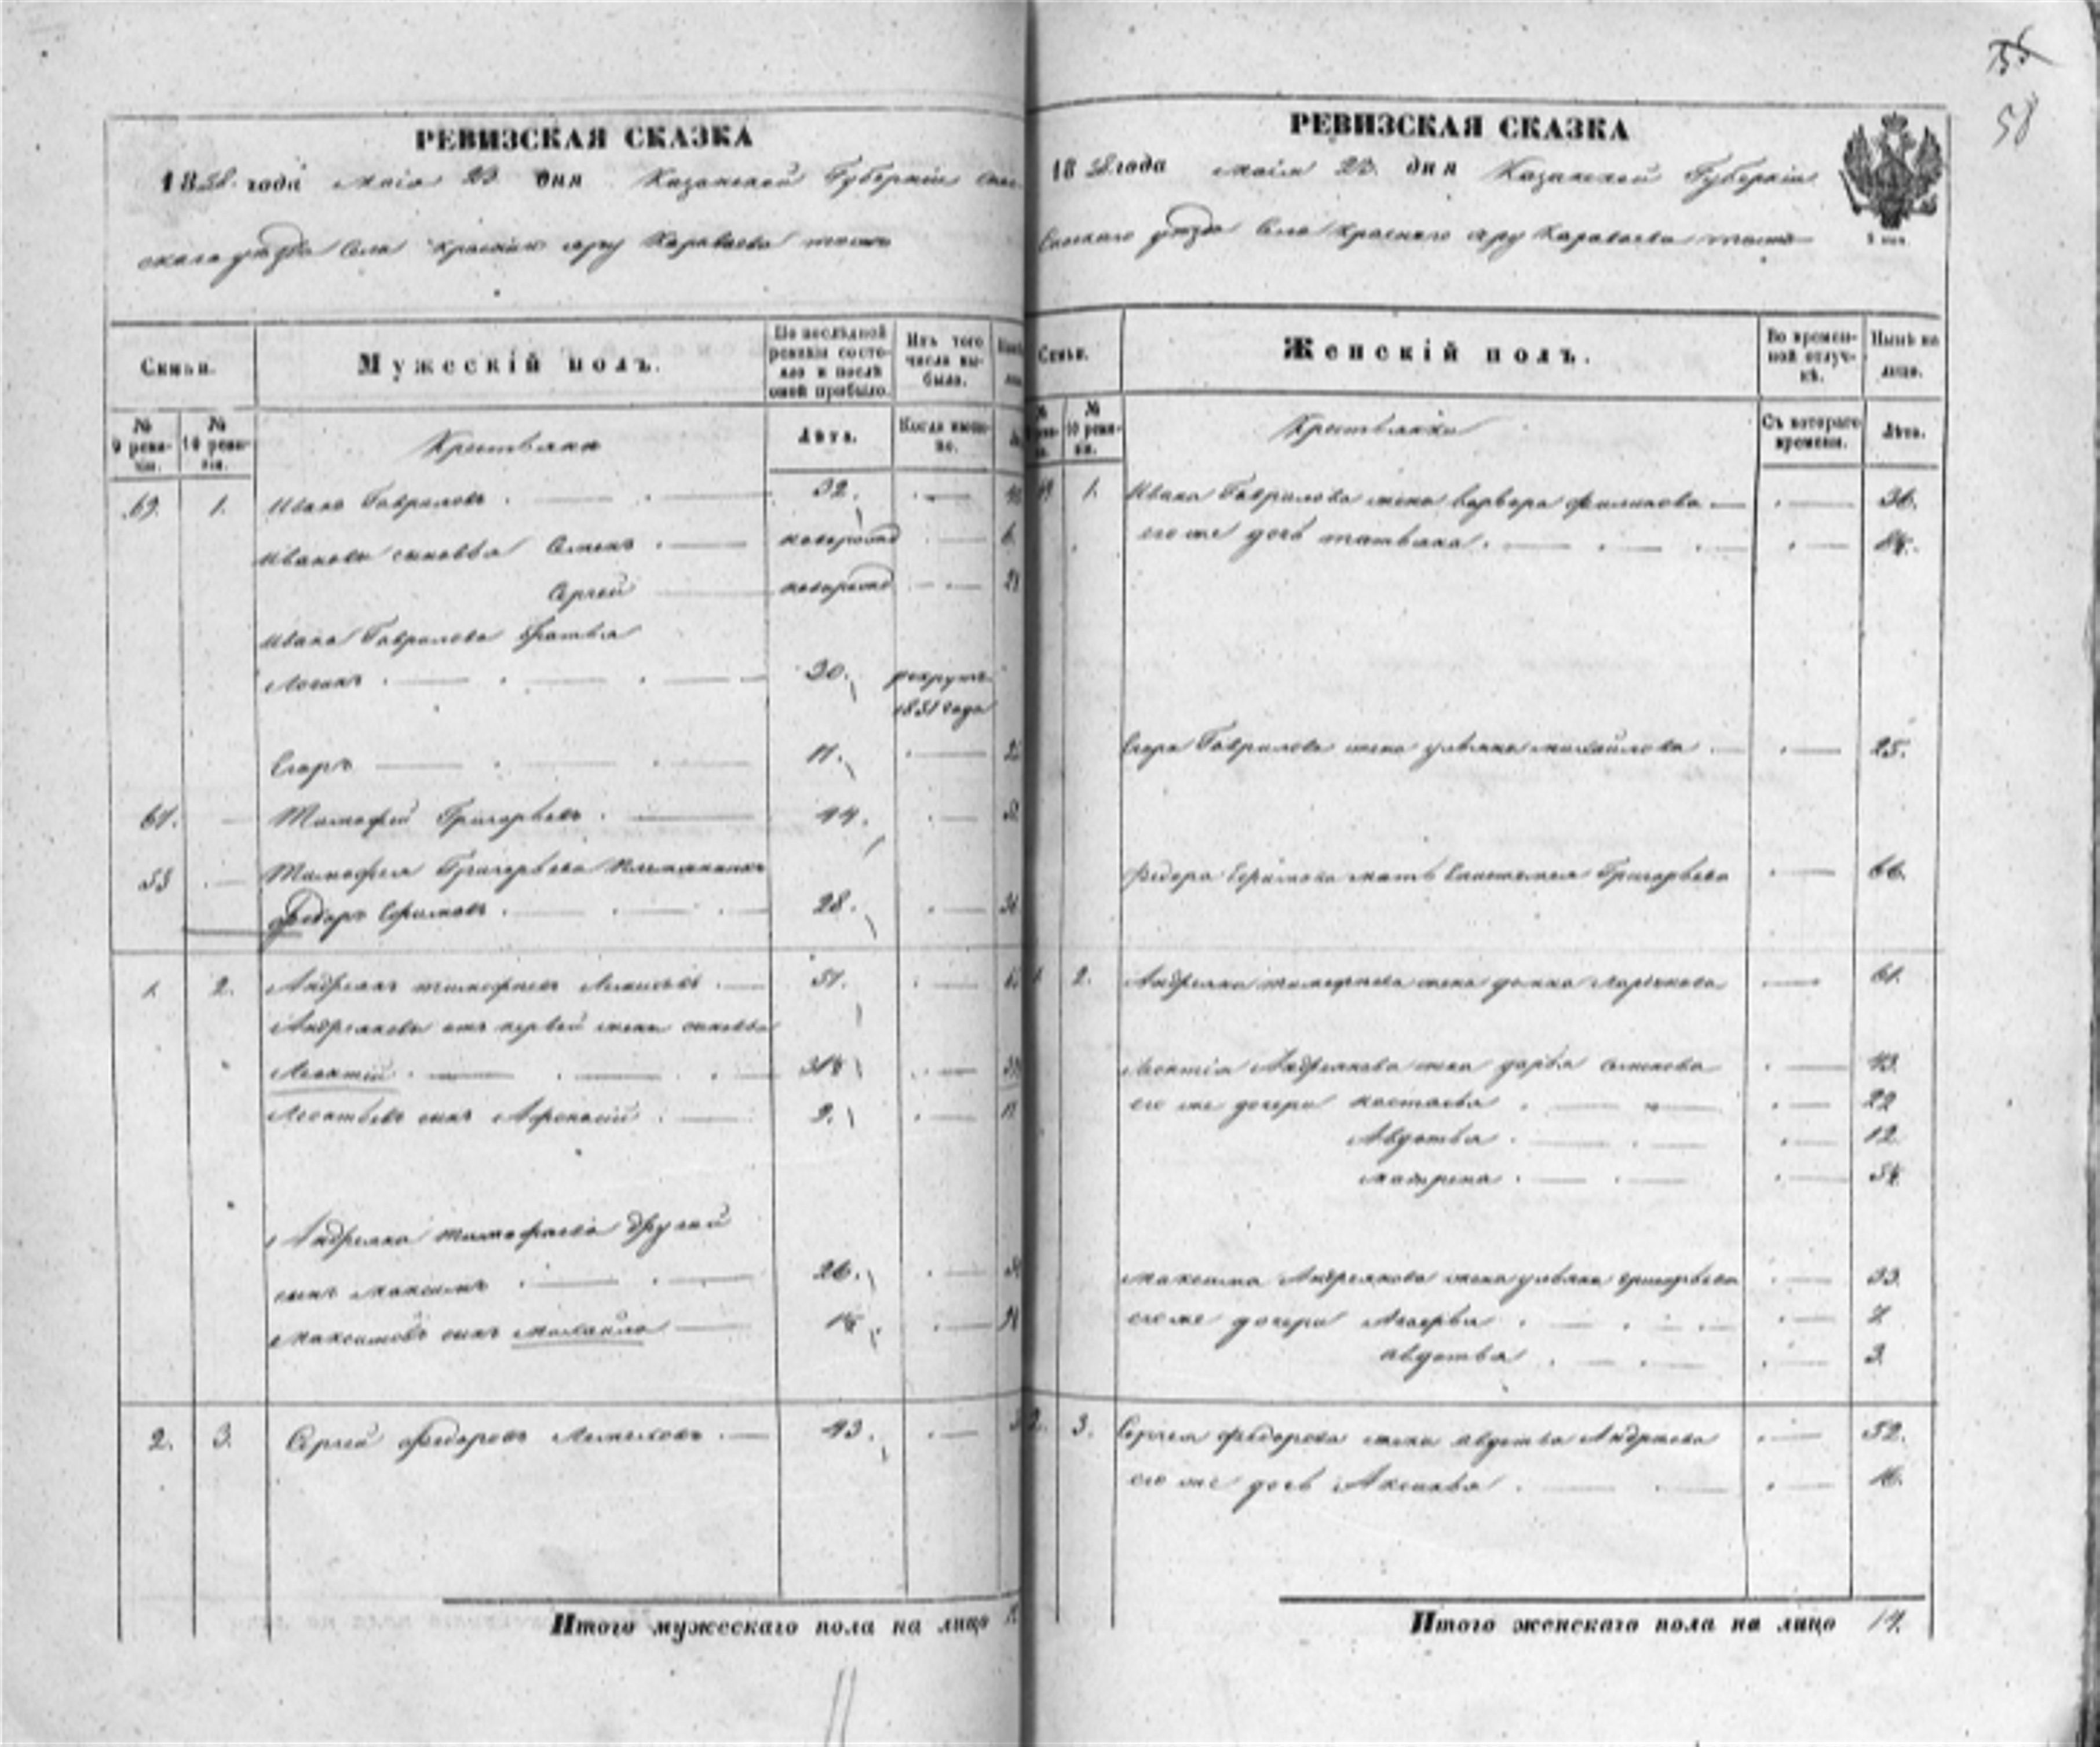 55
58
РЕВИЗСКАЯ СКАЗКА
1858 года маія 23 дня Казанской Губерніи Спас
скаго уѣзда Села Красной яру Караваева тожъ
Семьи.
Мужескій полъ.
По послѣдной ревизіи состояло и послѣ оной прибыло.
Изъ того числа выбыло.
№ 9 ревизіи.
№ 10 ревизіи.
Крестьяне
Лѣта.
Когда именно.
69. 1. Иванъ Гавриловъ 32.
Ивановы сыновья Семенъ новорожд 6.
Сергей новорожд
Ивана Гаврилова братья
Логинъ 20. рекрутъ
1851 года
Егоръ 11.
61. Тимофей Григорьевъ 44.
53 Тимофея Григорьева племянникъ
Федоръ Ефимовъ 28.
1. 2. Андреянъ тимофеевъ 51.
Андреяновы отъ первой жены сыновья
Леонтій
Леонтьевъ сынъ Афонасій 2.
Андреяна тимофеева другой
сынъ максимъ 26.
Максимовъ сынъ михайло
2. 3. Сергей федоровъ 43.
Итого мужескаго пола на лицо
РЕВИЗСКАЯ СКАЗКА
1858 года маія 23 дня Казанской Губерніи
Спаскаго уѣзда Села Краснаго яру Караваева тожъ
Семьи.
Женскій полъ.
Во временной отлучкѣ.
Нынѣ на лицо.
№ 10 ревизіи.
Крестьянки
Съ котораго времени.
Лѣта.
1. Ивана Гаврилова жена варвара филипова 36.
его же дочь татьяна
Егора Гаврилова жена ульяна михайлова 25.
Федора Ефимова мать Григорьева 66.
1. 2. Андреяна тимофеева жена домна 61.
Леонтія Андреянова жена дарья семенова 43.
его же дочери настасья 22
Авдотья 12
матрена
максима Андреянова жена ульяна григорьева 33.
его же дочери 7
авдотья 3
2. 3. Сергея федорова жена авдотья Андреева 52.
его же дочь Аксинья 16.
Итого женскаго пола на лицо 14.